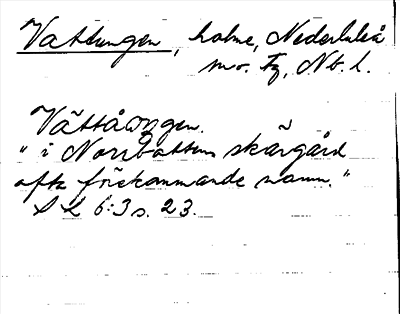 Vattungen, holme, Nederluleå
sn. Fg, Nb. l.
Vättåŋgen.
"i Norrbottens skärgård
ofta förekommande namn."
SL 6:3 s. 23.